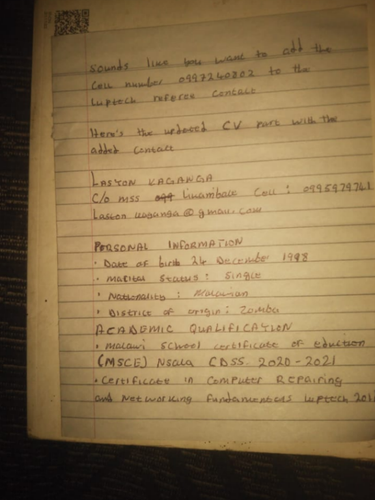 Sounds like you want to add the
Cell number 0997240802 to the
Luptech referee contact
Here's the updated CV part with the
added contact
LASTON KAGANGA
C/o mss Linambace Cell : 0995979741
Laston kaganga@gmail.com
PERSONAL INFORMATION
• Date of birth 24 December 1998
• Marital Status : Single
• Nationality : Malawian
• District of origin : Zomba
ACADEMIC QUALIFICATION
• Malawi School certificate of eduction
(MSCE) Nsala CDSS 2020 - 2021
• Certificate in Computer REPairing
and Networking fundamentals Luptech 201